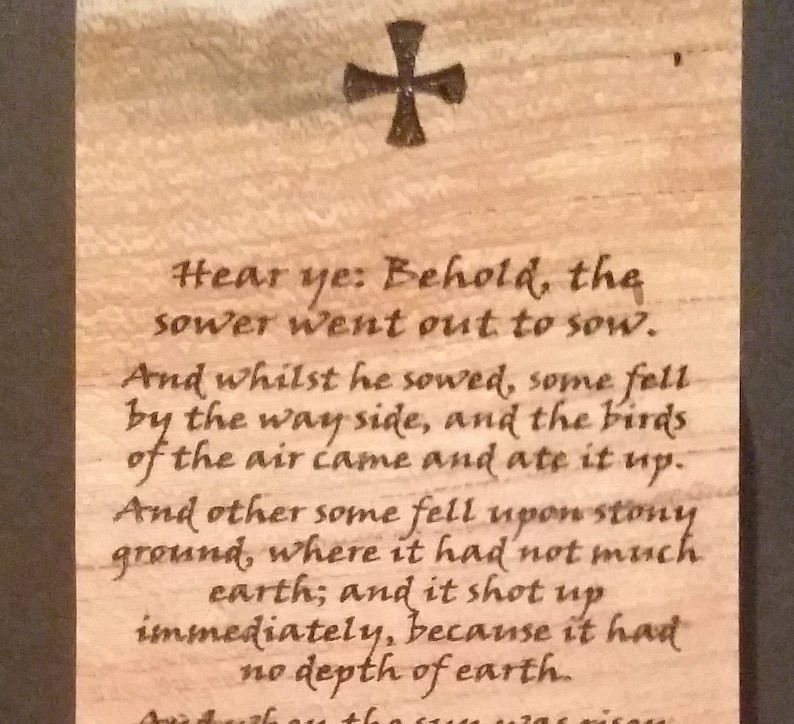 Hear ye: Behold, the
sower went out to sow.
And whilst he sowed, some fell
by the way side, and the birds
of the air came and ate it up.
And other some fell upon stony
ground, where it had not much
earth; and it shot up
immediately, because it had
no depth of earth.
And when the sun was risen